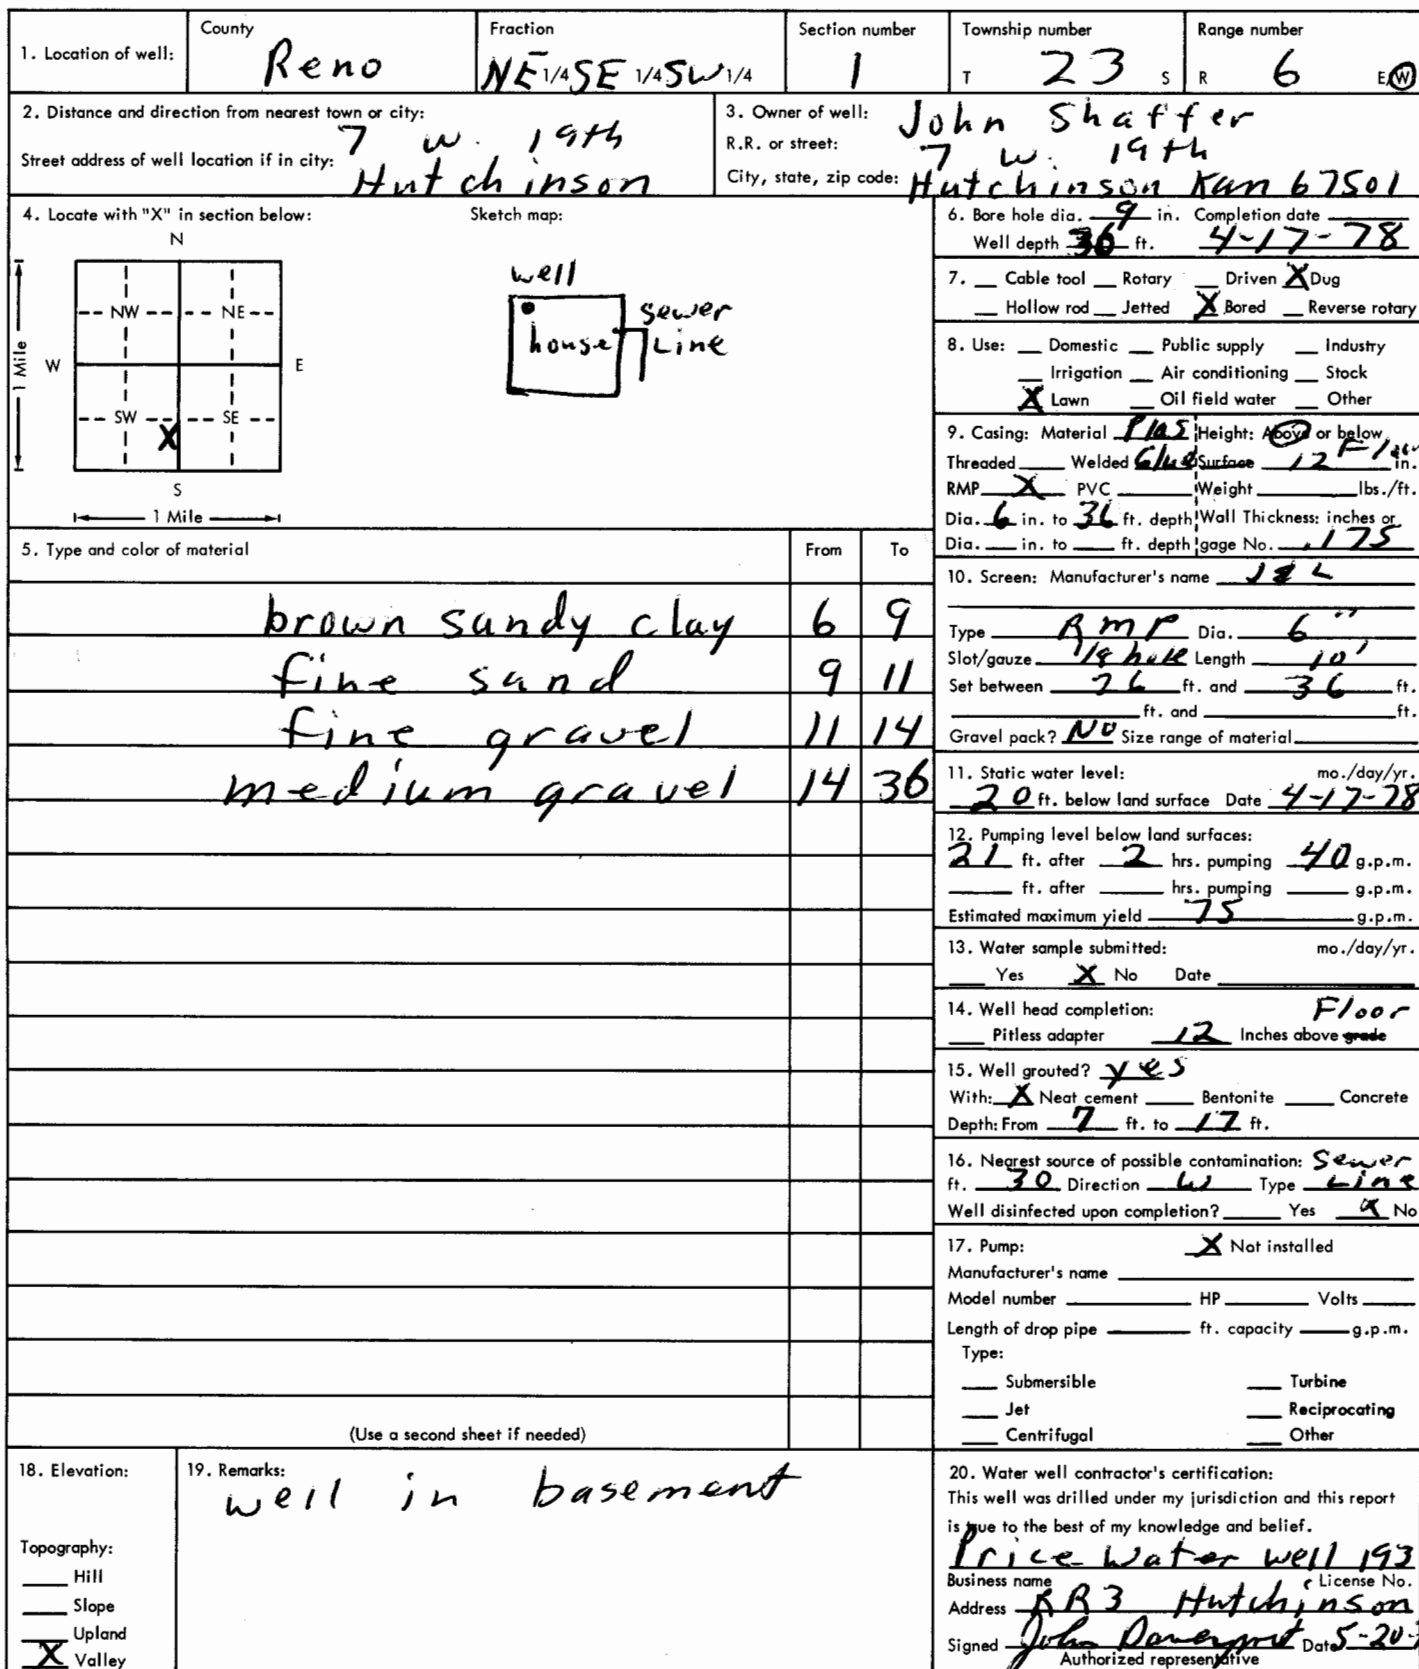 1. Location of well: County Reno Fraction NE 1/4 SE 1/4 SW 1/4 Section number 1 Township number T 23 S Range number R 6 E/W
2. Distance and direction from nearest town or city:
7 W. 19th
Street address of well location if in city:
Hutchinson
3. Owner of well: John Shaffer
R.R. or street: 7 W. 19th
City, state, zip code: Hutchinson Kan 67501
4. Locate with "X" in section below:
N
NW NE
W E
SW SE
X
S
1 Mile
1 Mile
Sketch map:
well
house
sewer
Line
5. Type and color of material From To
brown sandy clay 6 9
fine sand 9 11
fine gravel 11 14
medium gravel 14 36
(Use a second sheet if needed)
6. Bore hole dia. 9 in. Completion date
Well depth 36 ft. 4-17-78
7. __ Cable tool __ Rotary __ Driven X Dug
__ Hollow rod __ Jetted X Bored __ Reverse rotary
8. Use: __ Domestic __ Public supply __ Industry
__ Irrigation __ Air conditioning __ Stock
X Lawn __ Oil field water __ Other
9. Casing: Material Plas Height: Above or below
Threaded ___ Welded Glue Surface 12 Floor in.
RMP X PVC ___ Weight ___ lbs./ft.
Dia. 6 in. to 36 ft. depth Wall Thickness: inches or
Dia. ___ in. to ___ ft. depth gage No. .175
10. Screen: Manufacturer's name
Type RMP Dia. 6"
Slot/gauze 1/8 hole Length 10'
Set between 26 ft. and 36 ft.
___ ft. and ___ ft.
Gravel pack? NO Size range of material
11. Static water level: mo./day/yr.
20 ft. below land surface Date 4-17-78
12. Pumping level below land surfaces:
21 ft. after 2 hrs. pumping 40 g.p.m.
___ ft. after ___ hrs. pumping ___ g.p.m.
Estimated maximum yield 75 g.p.m.
13. Water sample submitted: mo./day/yr.
__ Yes X No Date
14. Well head completion: Floor
__ Pitless adapter 12 Inches above grade
15. Well grouted? yes
With: X Neat cement ___ Bentonite ___ Concrete
Depth: From 7 ft. to 17 ft.
16. Nearest source of possible contamination: Sewer
ft. 30 Direction W Type Line
Well disinfected upon completion? ___ Yes X No
17. Pump: X Not installed
Manufacturer's name
Model number ___ HP ___ Volts ___
Length of drop pipe ___ ft. capacity ___ g.p.m.
Type:
__ Submersible __ Turbine
__ Jet __ Reciprocating
__ Centrifugal __ Other
18. Elevation:
Topography:
__ Hill
__ Slope
__ Upland
X Valley
19. Remarks:
well in basement
20. Water well contractor's certification:
This well was drilled under my jurisdiction and this report
is true to the best of my knowledge and belief.
Price Water Well 193
Business name License No.
Address RR3 Hutchinson
Signed John Davenport Date 5-20-
Authorized representative